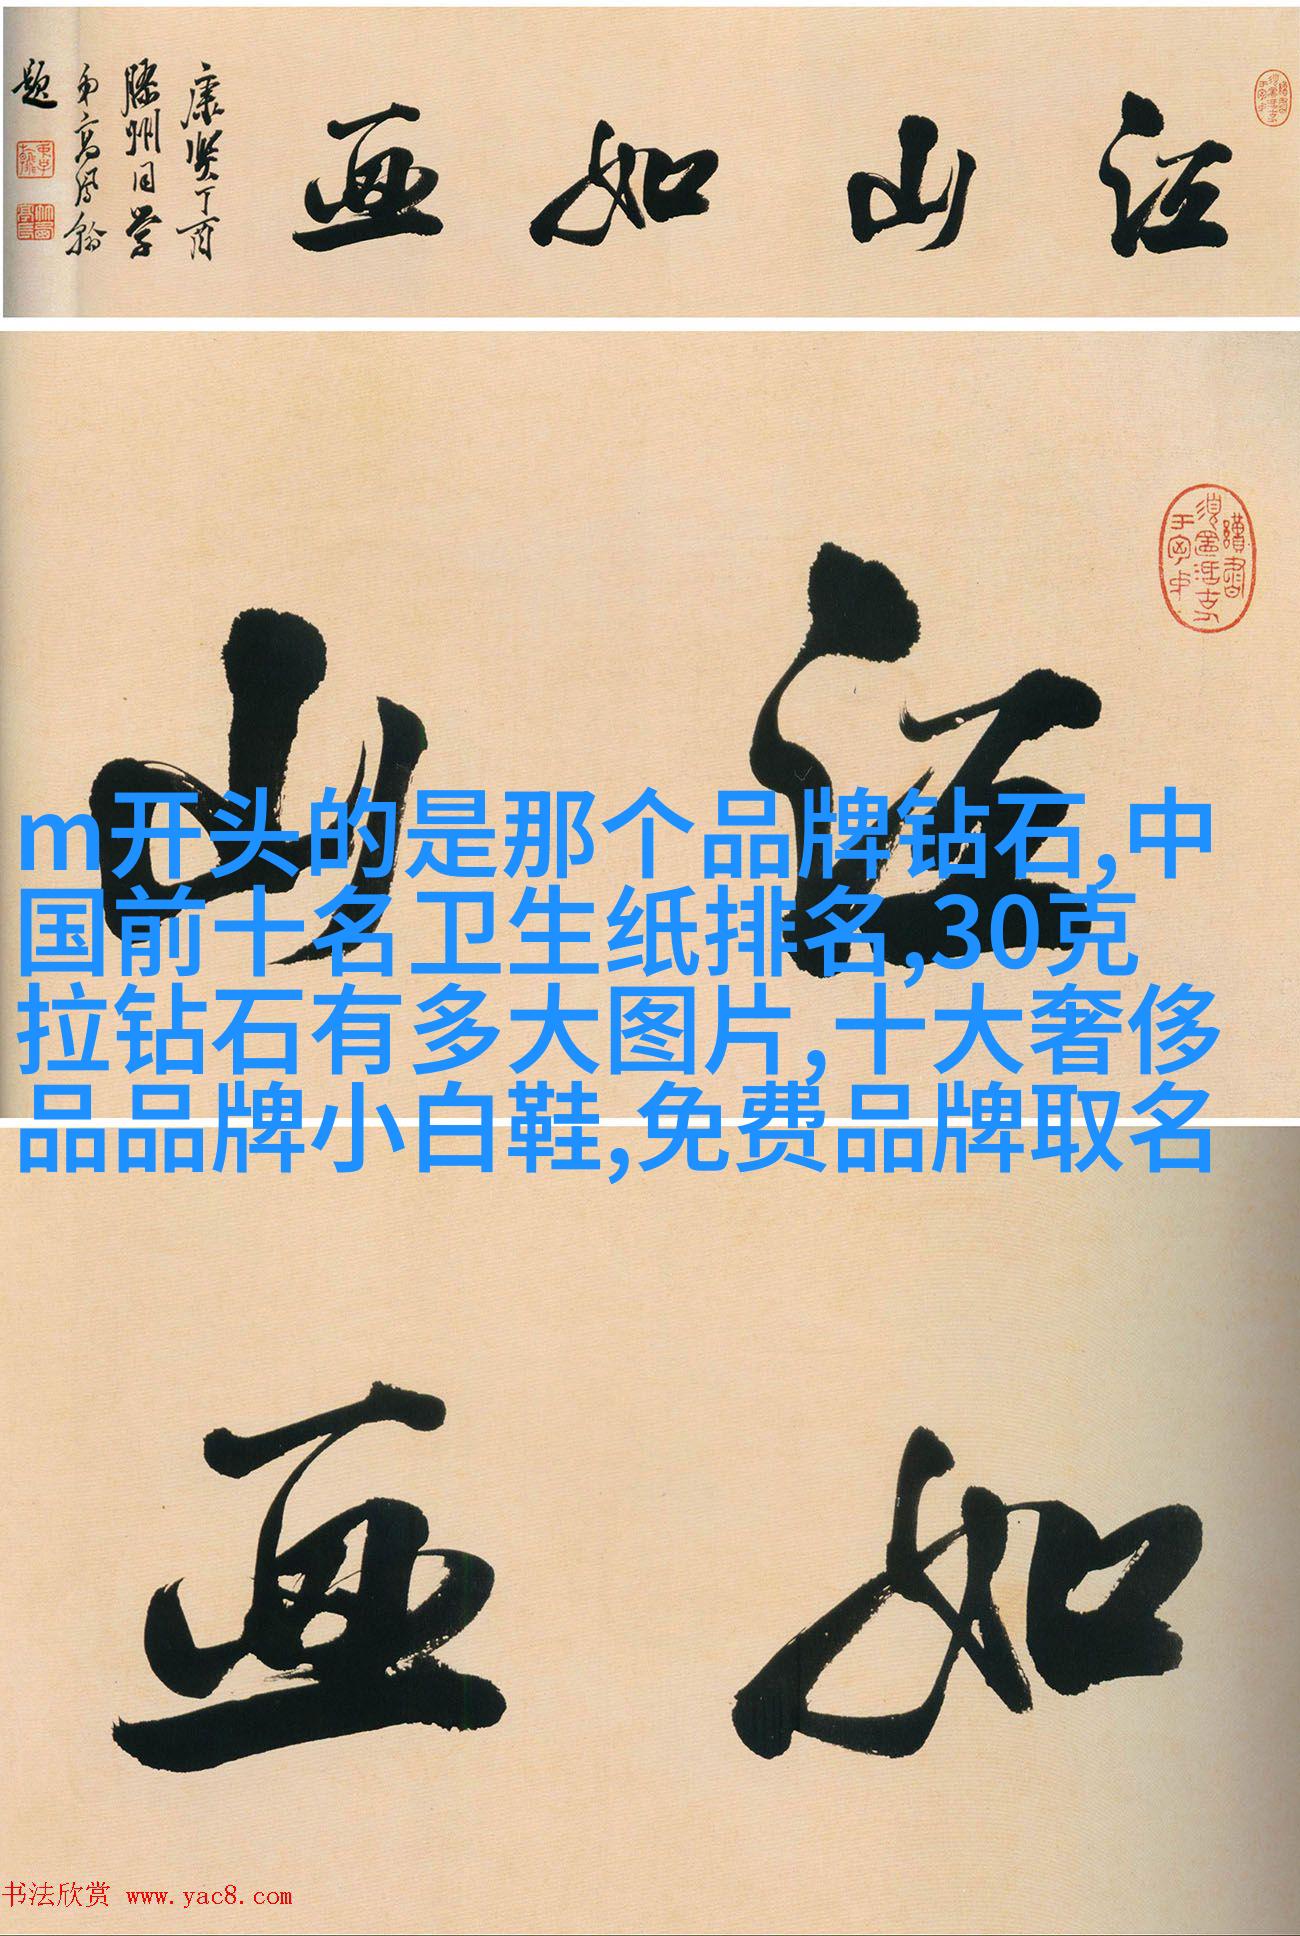 江山如画
康贤丁酉
滕州同学
弟高凤翰
题
江山
m开头的是那个品牌钻石,中
国前十名卫生纸排名,30克
拉钻石有多大图片,十大奢侈
品品牌小白鞋,免费品牌取名
如画
书法欣赏 www.yac8.com